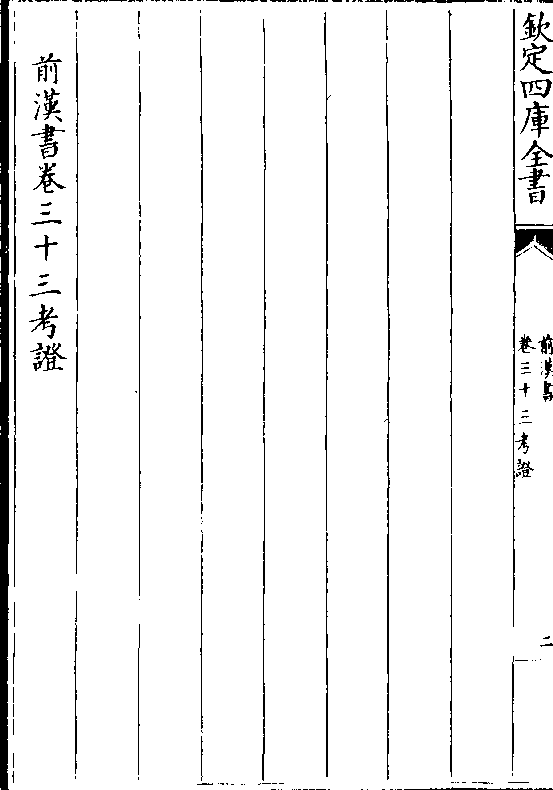 欽定四庫全書
前漢書
卷三十三考證
二
前漢書卷三十三考證